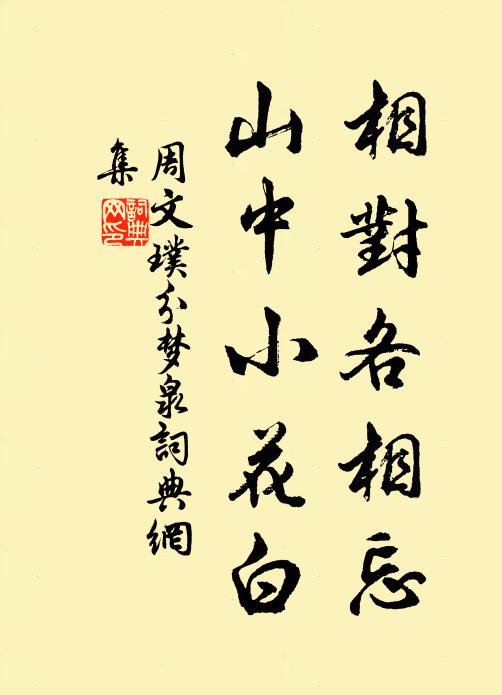 相對各相忘
山中小花白
周文璞分梦泉詞典網
集
詞典網印